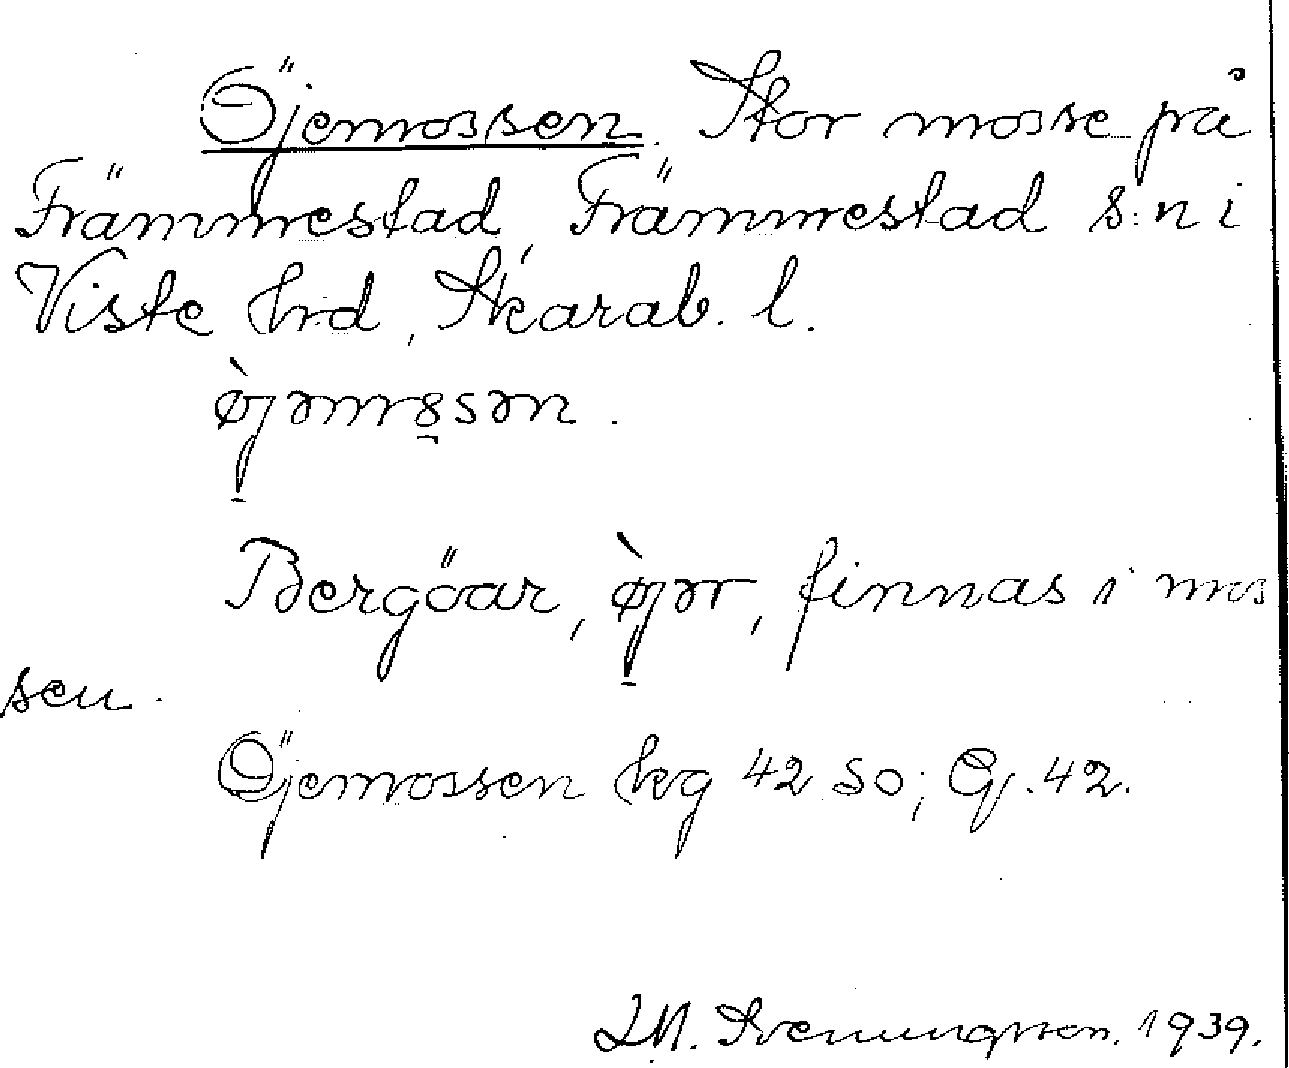 Öjemossen. Stor mosse på
Främmestad, Främmestad s:n i
Viste hrd, Skarab. l.
ø̀jəmȣsən.
Bergöar, ø̀jər, finnas i mos
sen.
Öjemossen hvg 42 SO; Gj. 42.
Svenungsson. 1939.